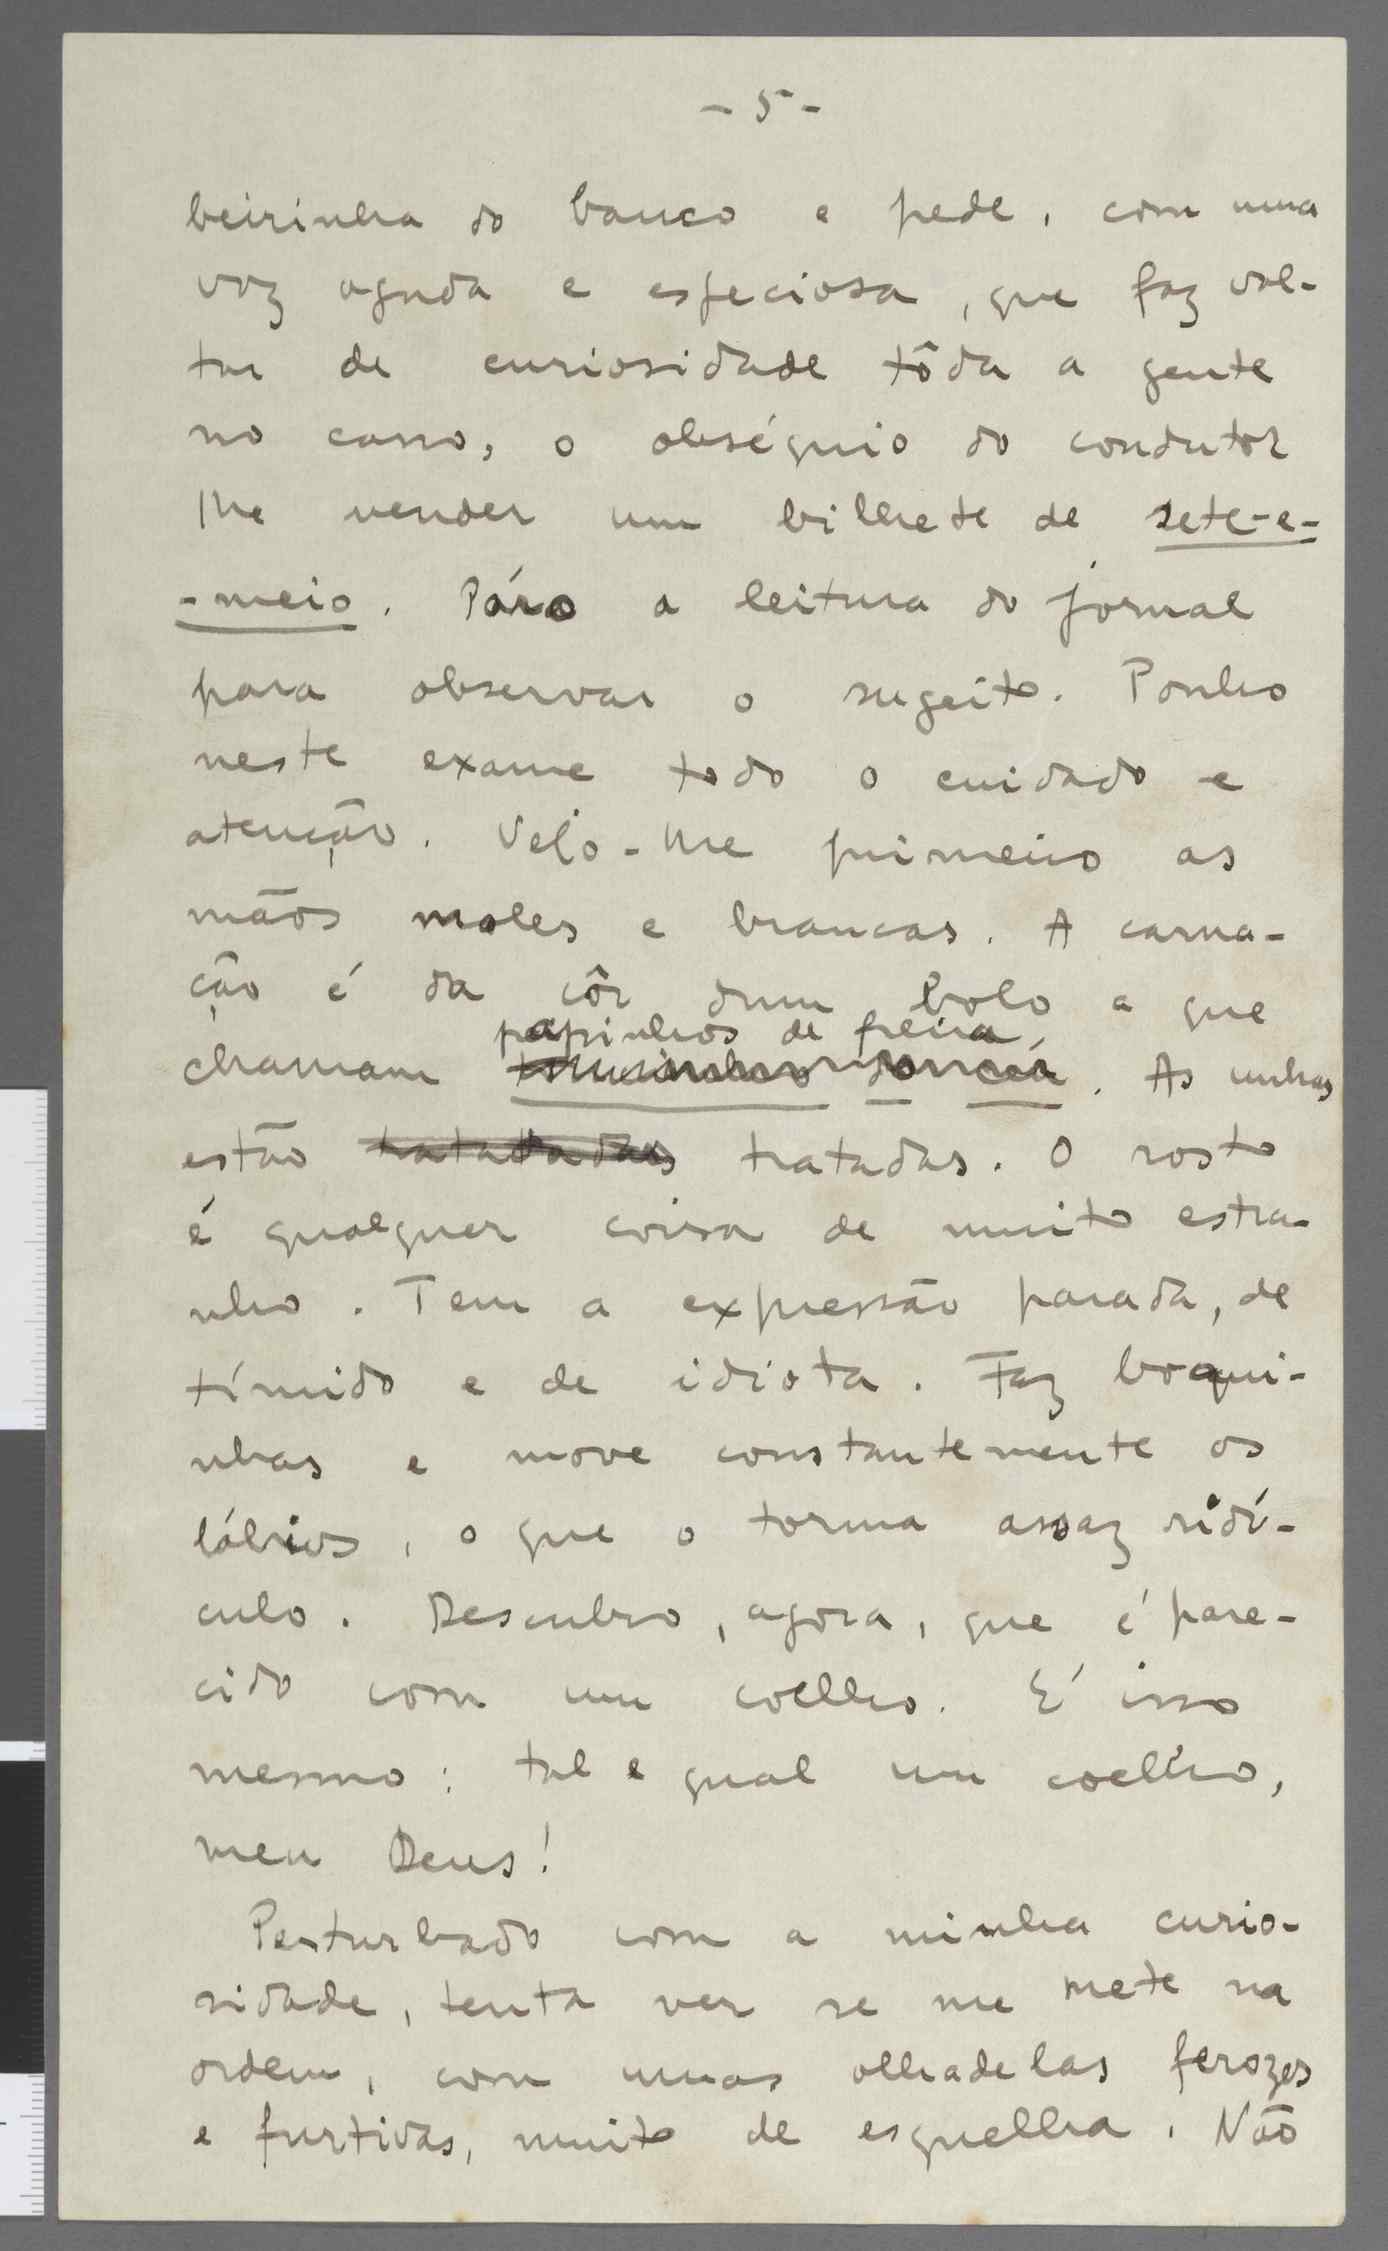 - 5 -
beirinha do banco e pede, com uma
voz aguda e especiosa, que faz vol-
tar de curiosidade tôda a gente
no carro, o obséquio do condutor
lhe vender um bilhete de sete-e-
-meio. Páro a leitura do jornal
para observar o sugeito. Ponho
neste exame todo o cuidado e
atenção. Vejo-lhe primeiro as
mãos moles e brancas. A carna-
ção é da côr dum bolo a que
papinhos de freira
chamam toucinho do céu. As unhas
estão tratadadas tratadas. O rosto
é qualquer coisa de muito estra-
nho. Tem a expressão parada, de
tímido e de idiota. Faz boqui-
nhas e move constantemente os
lábios, o que o torna assaz ridí-
culo. Descubro, agora, que é pare-
cido com um coelho. É isso
mesmo: tal e qual um coelho,
meu Deus!
Perturbado com a minha curio-
sidade, tenta ver se me mete na
ordem, com umas olhadelas ferozes
e furtivas, muito de esguelha. Não